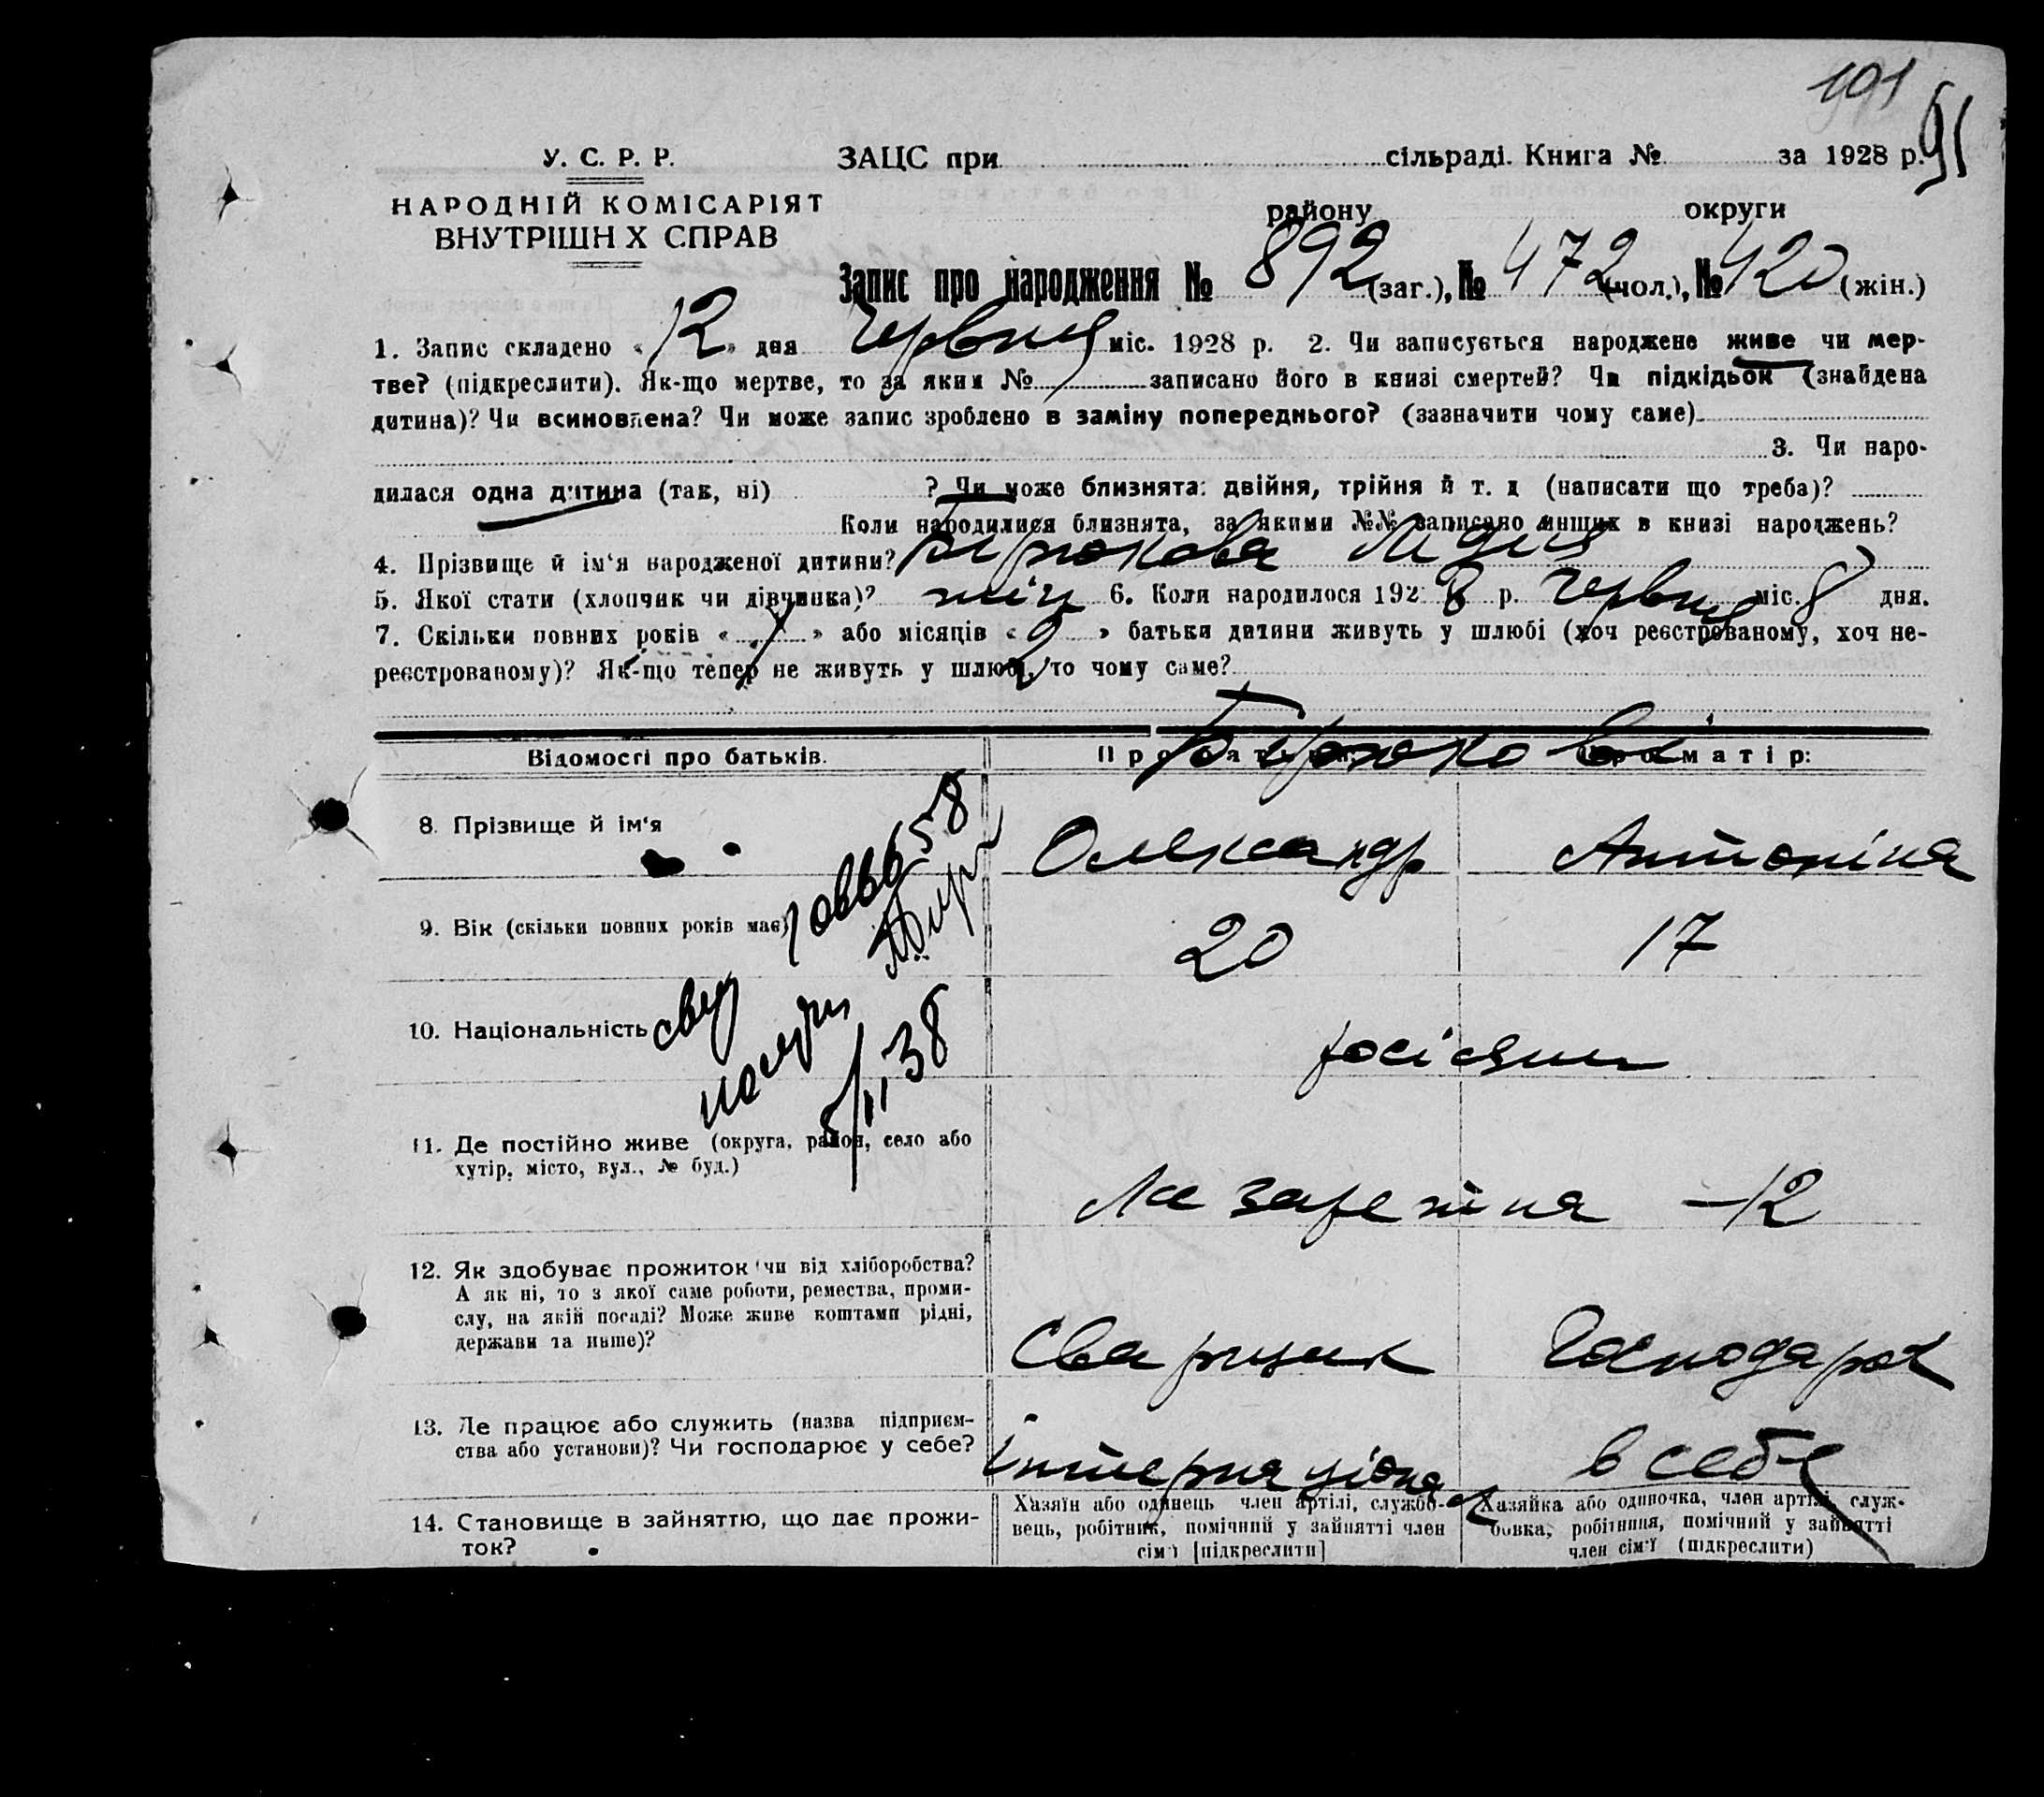 191
91
У. С. Р. Р. ЗАЦС при сільраді. Книга № за 1928 р.
НАРОДНІЙ КОМІСАРІЯТ району округи
ВНУТРІШН Х СПРАВ
Запис про народження № 892 (заг.), № 472 (чол.), № 420 (жін.)
1. Запис складено « 12 » дня червня міс. 1928 р. 2. Чи записується народжене живе чи мер-
тве? (підкреслити). Як-що мертве, то за яким № записано його в книзі смертей? Чи підкідьок (знайдена
дитина)? Чи всиновлена? Чи може запис зроблено в заміну попереднього? (зазначити чому саме)
3. Чи наро-
дилася одна дитина (так, ні) ? Чи може близнята: двійня, трійня й т. д (написати що треба)?
Коли народилися близнята, за якими №№ записано инших в книзі народжень?
4. Прізвище й ім'я народженої дитини? Бірюкова Лідія
5. Якої стати (хлопчик чи дівчинка)? жін 6. Коли народилося 1928 р. червня міс. 8 дня.
7. Скільки повних років « » або місяців « 9 » батьки дитини живуть у шлюбі (хоч реєстрованому, хоч не-
реєстрованому)? Як-що тепер не живуть у шлюбі, то чому саме?
Бірюкови
Відомості про батьків. Про батька: Про матір:
8. Прізвище й ім'я Олександр Антоніна
9. Вік (скільки повних років має) 20 17
10. Національність росіяни
11. Де постійно живе (округа, район, село або
хутір, місто, вул., № буд.)
Лазаретна – 12
12. Як здобуває прожиток чи від хліборобства?
А як ні, то з якої саме роботи, ремества, проми-
слу, на якій посаді? Може живе коштами рідні,
держави та инше)?
Сварщик Господарка
13. Де працює або служить (назва підприєм-
ства або установи)? Чи господарює у себе?
Інтернаціонал в себе
14. Становище в зайняттю, що дає прожи-
ток?
Хазяїн або одинець член артілі, службо-
вець, робітник, помічний у зайнятті член
сім'ї [підкреслити]
Хазяйка або одиночка, член артілі, служ-
бовка, робітниця, помічний у зайнятті
член сім'ї (підкреслити)